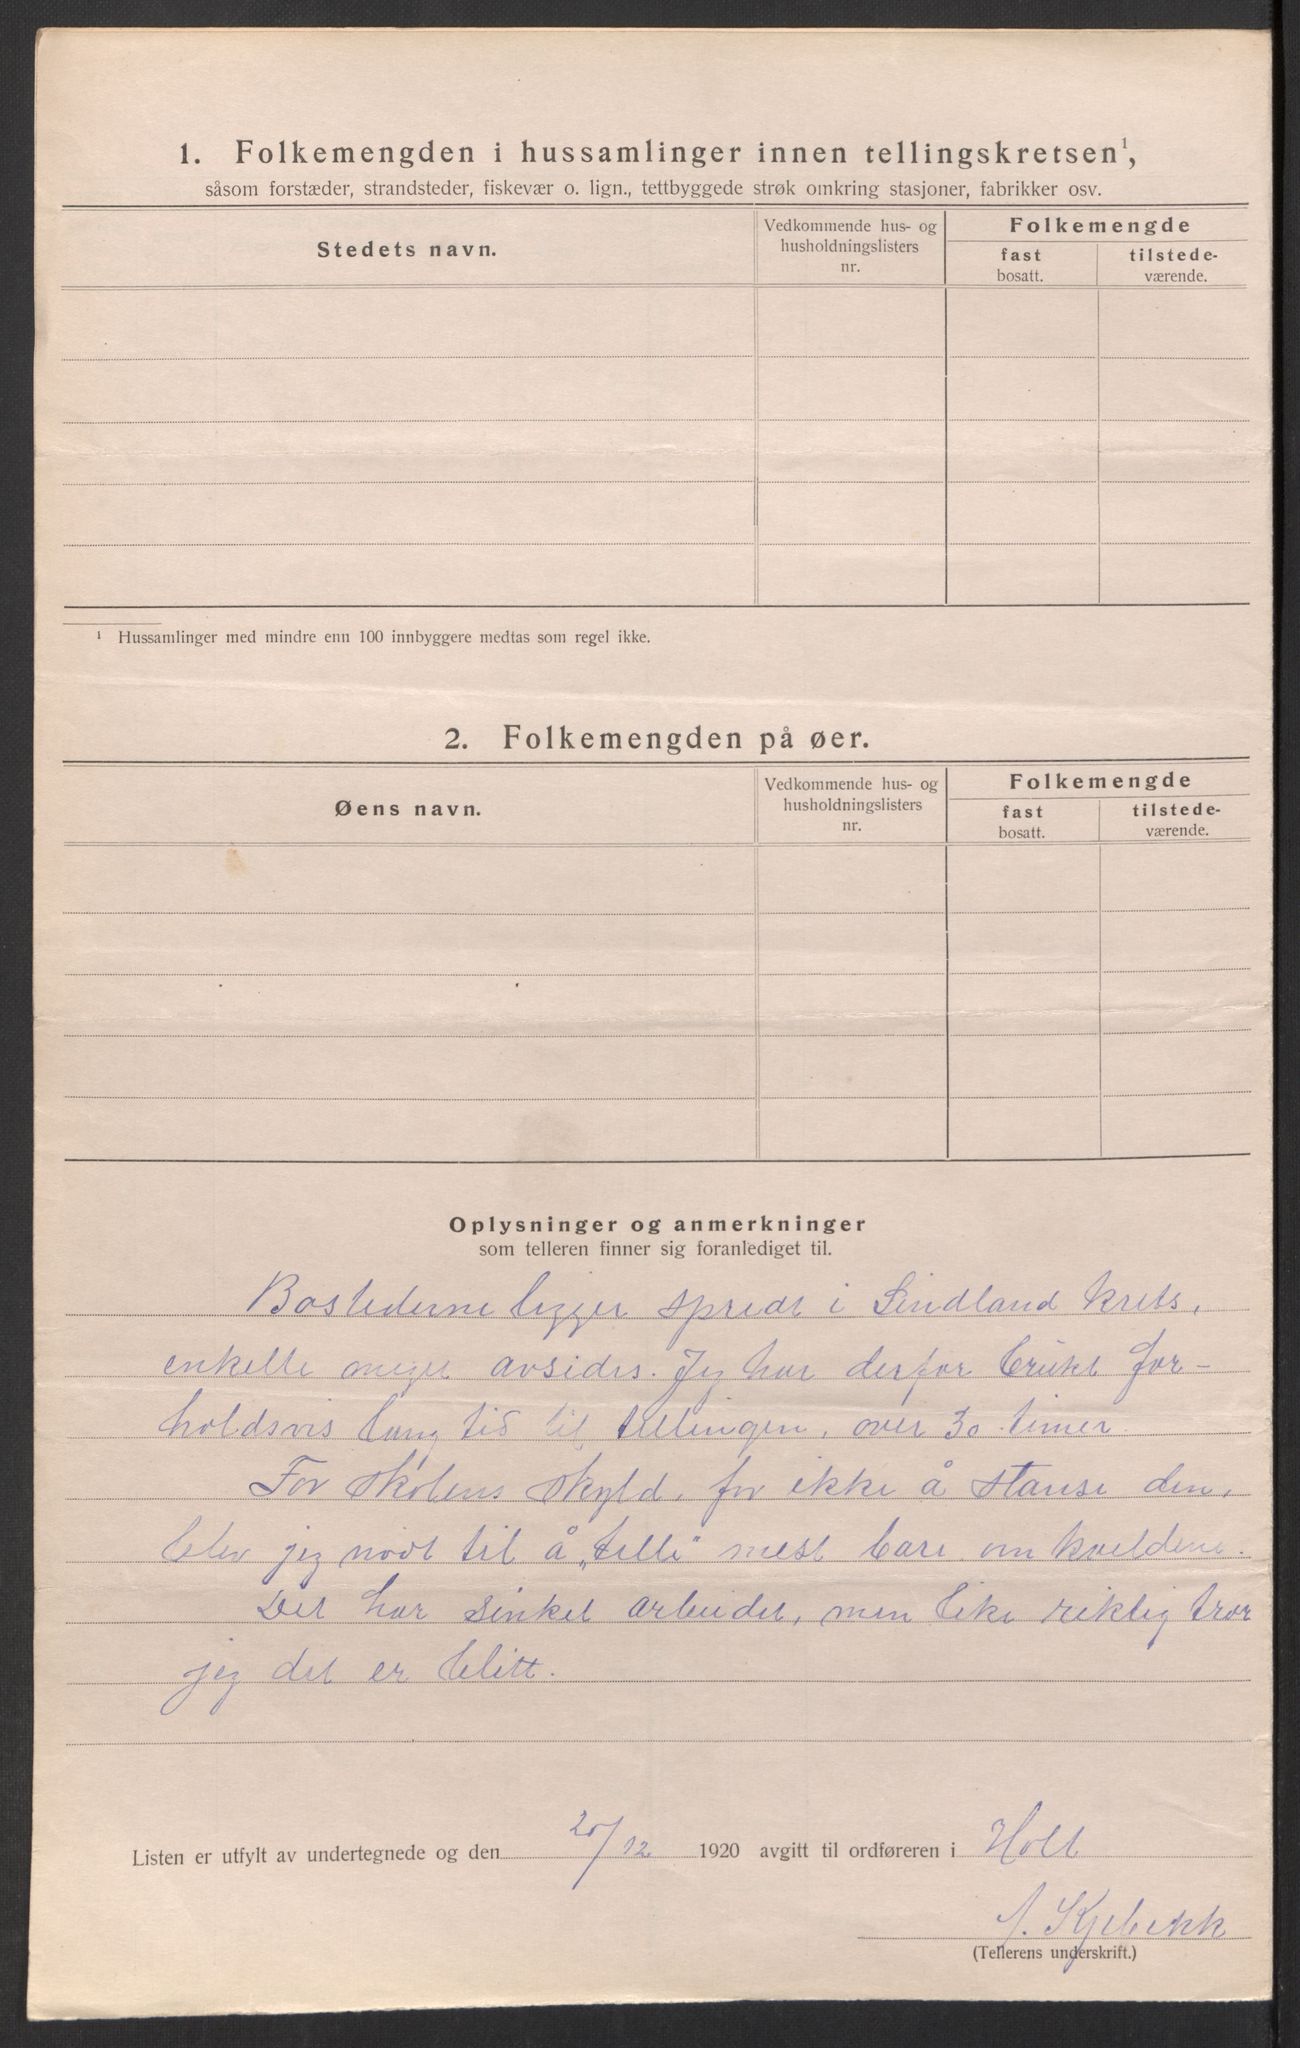 1. Folkemengden i hussamlinger innen tellingskretsen¹,
såsom forstæder, strandsteder, fiskevær o. lign., tettbyggede strøk omkring stasjoner, fabrikker osv.
Stedets navn.
Vedkommende hus- og
husholdningslisters
nr.
Folkemengde
fast
bosatt.
tilstede-
værende.
¹ Hussamlinger med mindre enn 100 innbyggere medtas som regel ikke.
2. Folkemengden på øer.
Øens navn.
Vedkommende hus- og
husholdningslisters
nr.
Folkemengde
fast
bosatt.
tilstede-
værende.
Oplysninger og anmerkninger
som telleren finner sig foranlediget til.
Bostederne ligger spredt i Sindland krets,
enkelte meget avsides. Jeg har derfor brukt for-
holdsvis lang tid til tellingen, over 30 timer.
For skolens skyld, for ikke å stanse den,
blev jeg nødt til å „telle" mest bare om kveldene.
Det har sinket arbeidet, men like riktig tror
jeg det er blitt.
Listen er utfylt av undertegnede og den 20/12 1920 avgitt til ordføreren i Holt
Kjebekk
(Tellerens underskrift.)